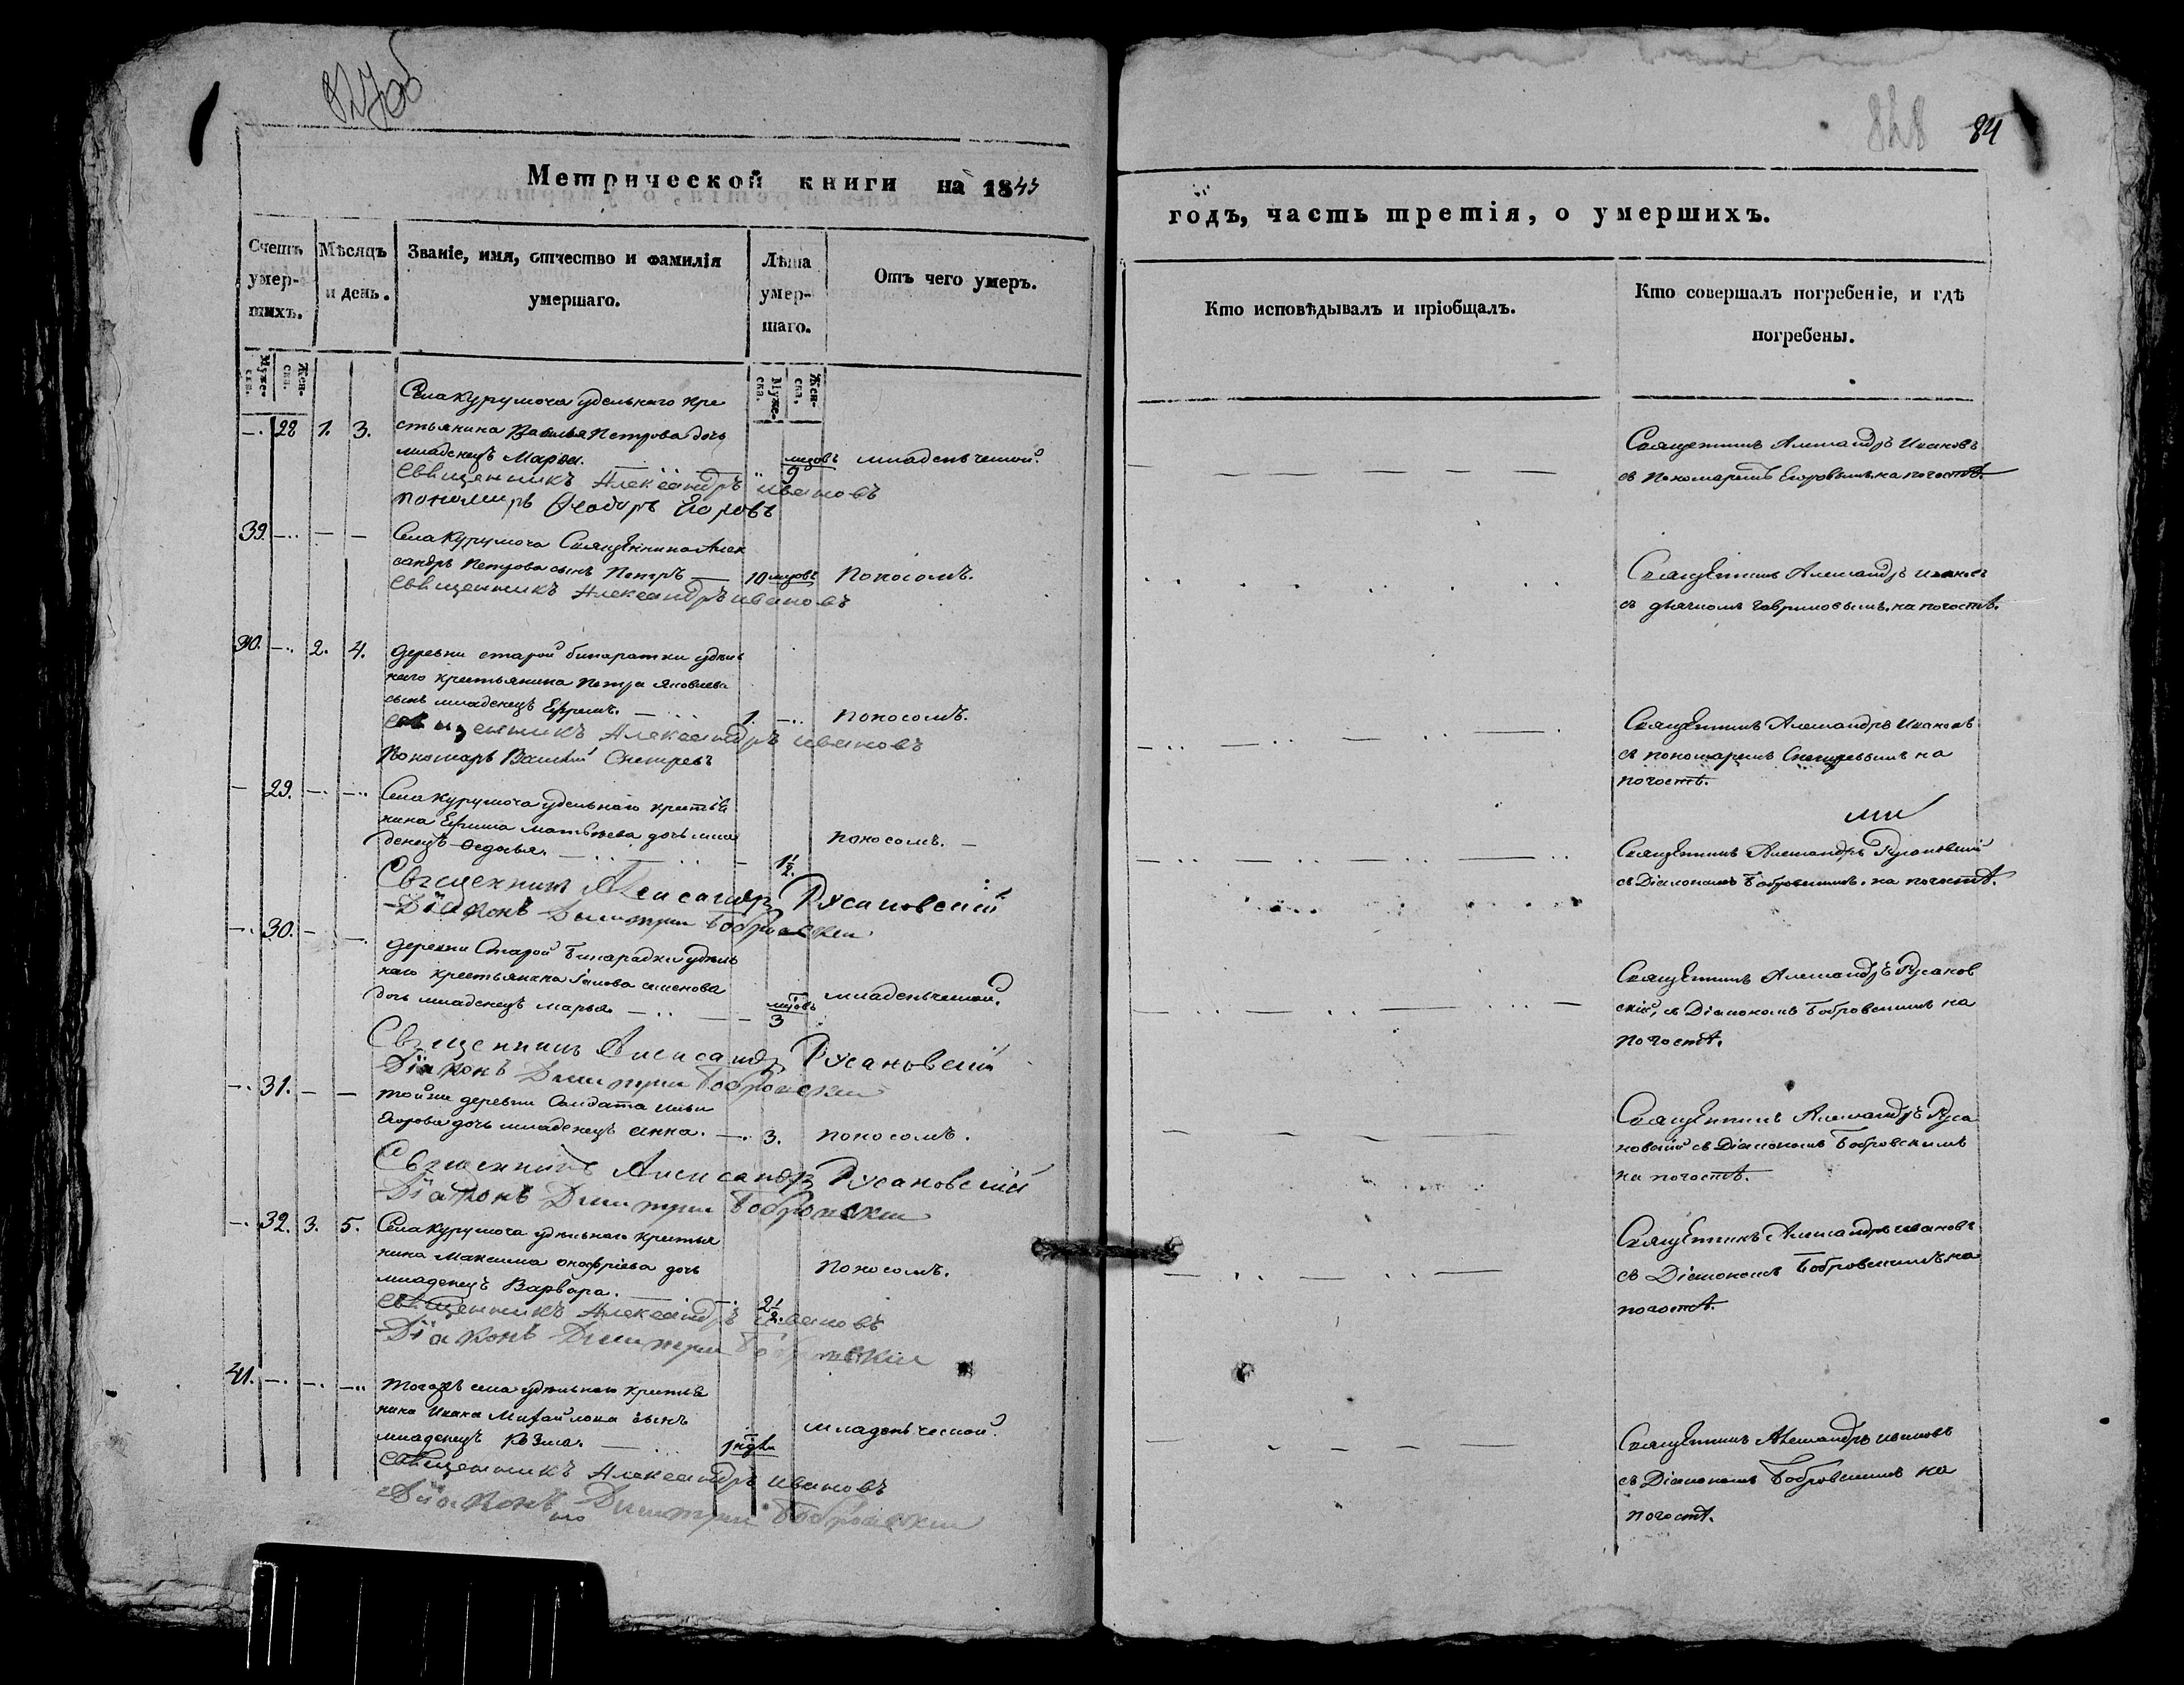 827об
848 84
Метрической книги на 1843
годъ, часть третія, о умершихъ.
Счетъ умер-шихъ.
Мѣсяцъ и день.
Званіе, имя, отчество и фамилія умершаго.
Лѣта умер-шаго.
Отъ чего умеръ.
Кто исповѣдывалъ и пріобщалъ.
Кто совершалъ погребеніе, и гдѣ погребены.
Муже-ска. Жен-ска.
Муже-ска. Жен-ска.
Села Курумоча удельнаго кре
28 1. 3. стьянина Василья Петрова дочь
младенецъ Марья. мцовъ 9 младенческой.
Священникъ Александръ Ивановъ
пономарь Ѳеодоръ Егоровъ
Священникъ Александръ Ивановъ
съ Пономаремъ Егоровымъ, на погостѣ.
39. Села Курумоча Священника Алек
сандръ Петрова сынъ Петръ 10 мцовъ Поносомъ.
Священникъ Александръ Ивановъ
Священникъ Александръ Ивановъ
съ дьячкомъ Гавриловымъ, на погостѣ.
30. 2. 4. Деревни старой бинаратки удѣль
наго крестьянина Петра Яковлева
сынъ младенецъ Ефремъ. 1. Поносомъ.
Священникъ Александръ Ивановъ
Пономарь Василій Снегиревъ
Священникъ Александръ Ивановъ
съ пономаремъ Снегиревымъ на
погостѣ.
29. Села Курумоча удельнаго крестья
нина Ефима Матвѣева дочь мла
денецъ Ѳедосья. 1½. поносомъ.
Священникъ Александръ Русановскій
Діаконъ Димитрій Бобровскій
Священникъ Александръ Русановскій
съ Діакономъ Бобровскимъ, на погостѣ.
30. деревни Старой Бинарадки удѣль
наго крестьянина Іакова Семенова
дочь младенецъ Марья. мцовъ 3 младенческой.
Священникъ Александръ Русановскій
Діаконъ Димитрій Бобровскій
Священникъ Александръ Русанов
скій, съ Діакономъ Бобровскимъ на
погостѣ.
31. той же деревни Солдата Ильи
Егорова дочь младенецъ Анна. 3. поносомъ.
Священникъ Александръ Русановскій
Діаконъ Димитрій Бобровскій
Священникъ Александръ Руса
новскій съ Діакономъ Бобровскимъ
на погостѣ.
32. 3. 5. Села Курумоча удѣльнаго крестья
нина Максима Онофріева дочь
младенецъ Варвара. 2½. Поносомъ.
Священникъ Александръ Ивановъ
Діаконъ Димитрій Бобровскій
Священникъ Александръ Ивановъ
съ Діакономъ Бобровскимъ на
погостѣ.
41. Тогожъ села удѣльнаго крестья
нина Ивана Михайлова сынъ
младенецъ Козма. 1 ндѣли младенческой.
Священникъ Александръ Ивановъ
Діаконъ Димитрій Бобровскій
Священникъ Александръ Ивановъ
съ Діакономъ Бобровскимъ на
погостѣ.